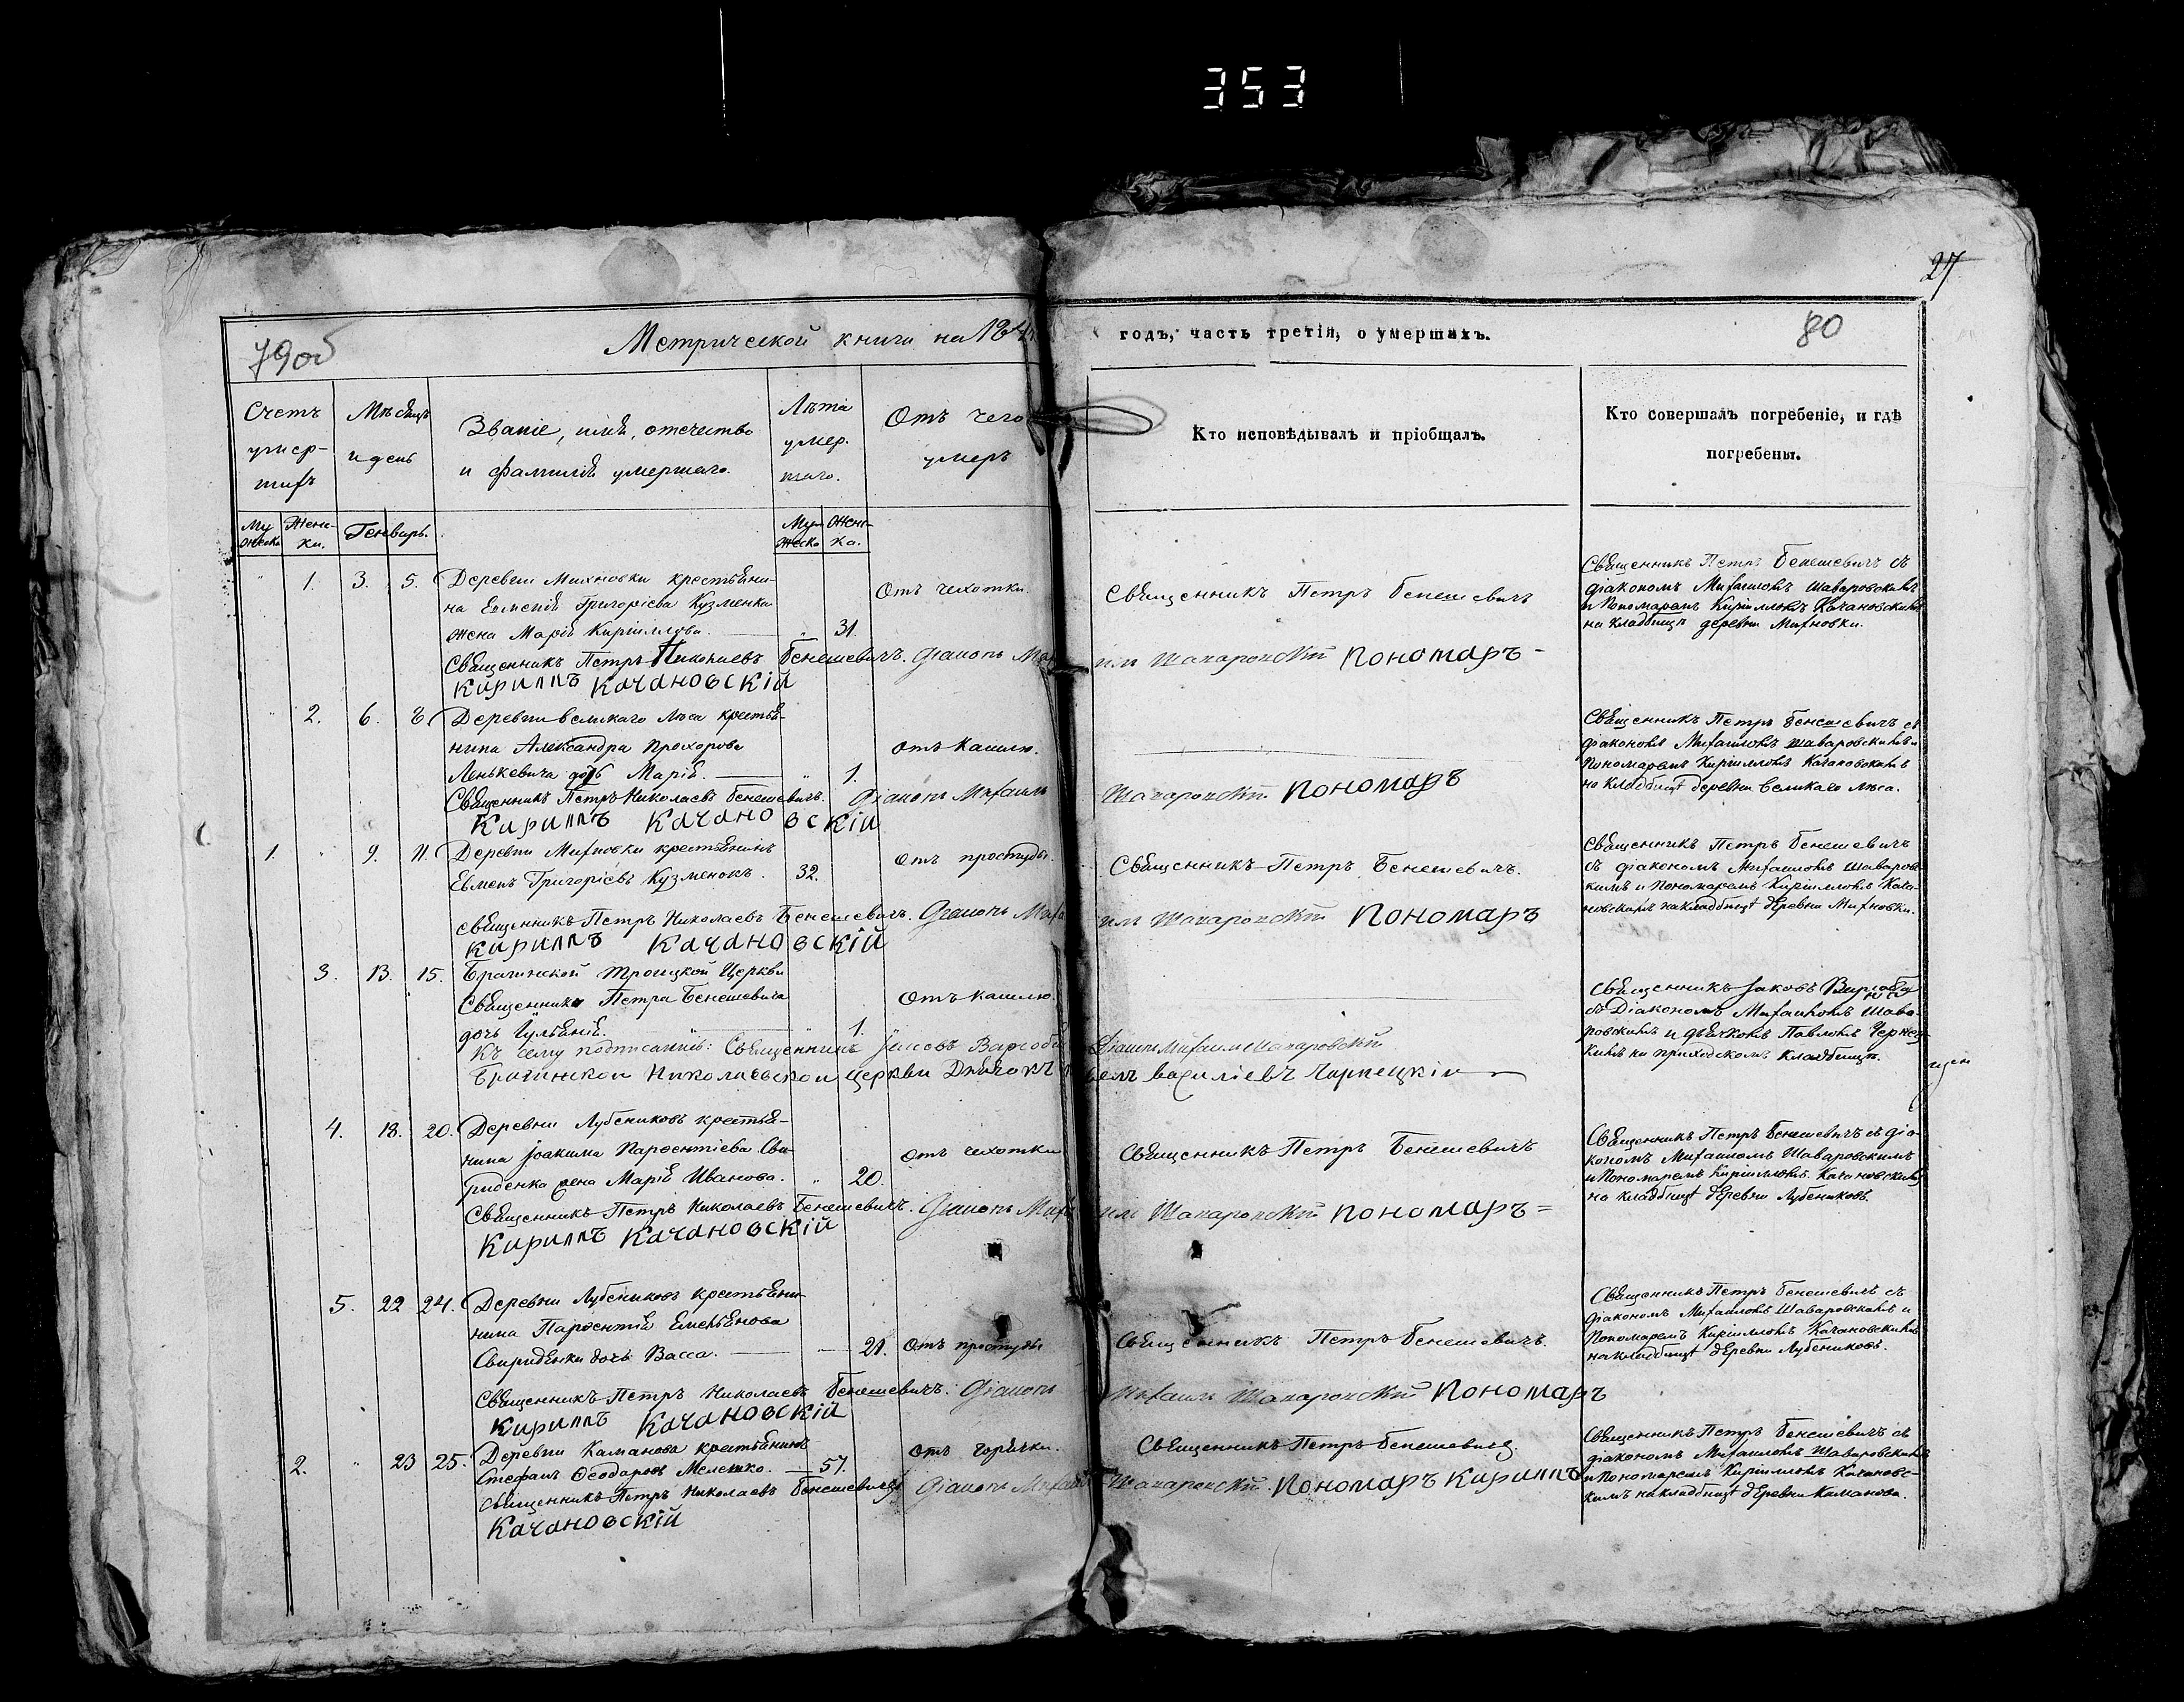 353
27
79об
Метрической книги на 184
годъ, часть третія, о умершихъ.
80
Счетъ умер-шихъ
Мѣсяцъ и день
Званіе, имя, отечество и фамилія умершаго.
Лѣта умер-шаго.
Отъ чего умеръ
Кто исповѣдывалъ и пріобщалъ.
Кто совершалъ погребеніе, и гдѣ погребены.
Му жеска
Женс-ка.
Генварь.
Му жеска
Женс-ка.
" 1. 3. 5. Деревни Михновки крестьяни-
на Евмена Григоріева Кузменка
жена Марія Кириллова. " 31.
Отъ чехотки.
Священникъ Петръ Бенешевичъ
Священникъ Петръ Бенешевичъ съ
діакономъ Михаиломъ Шаваровскимъ
и Пономаремъ Кирилломъ Качановскимъ
на кладбищѣ деревни Михновки.
Священникъ Петръ Николаевъ Бенешевичъ. Діаконъ Михаилъ Шаваровскій Пономаръ
Кириллъ Качановскій
" 2. 6. 8. Деревни великаго Лѣса крестья-
нина Александра Прохорова
Ленькевича дочь Марія. " 1.
отъ кашлю.
Священникъ Петръ Бенешевичъ съ
діакономъ Михаиломъ Шаваровскимъ и
Пономаремъ Кирилломъ Качановскимъ
на кладбищѣ деревни великаго лѣса.
Священникъ Петръ Николаевъ Бенешевичъ. Діаконъ Михаилъ Шаваровскій Пономаръ
Кириллъ Качановскій
1. " 9. 11. Деревни Михновки крестьянинъ
Евменъ Григоріевъ Кузменокъ. 32.
отъ простуды.
Священникъ Петръ Бенешевичъ.
Священникъ Петръ Бенешевичъ
съ діакономъ Михаиломъ Шаваровс-
кимъ и Пономаремъ Кирилломъ Кача-
новскимъ на кладбищѣ деревни Михновки.
священникъ Петръ Николаевъ Бенешевичъ. Діаконъ Михаилъ Шаваровскій Пономаръ
Кириллъ Качановскій
3. 13. 15. Брагинской Троицкой Церкви
Священника Петра Бенешевича
дочь Іуліанія. " 1.
Отъ кашлю.
Священникъ Іаковъ
съ Діакономъ Михаиломъ Шава-
ровскимъ и дьячкомъ Павломъ Чернец-
кимъ на приходскомъ кладбищѣ.
Къ сему подписались: Священникъ Іаковъ Діаконъ Михаилъ Шаваровскій
Брагинской Николаевской церкви Дьячокъ Павелъ Василіевъ Чарнецкій
4. 18. 20. Деревни Лубениковъ крестья-
нина Іоакима Парфентіева Сви-
риденка жена Марія Иванова. " 20.
отъ чехотки
Священникъ Петръ Бенешевичъ
Священникъ Петръ Бенешевичъ съ діа-
кономъ Михаиломъ Шаваровскимъ
и Пономаремъ Кирилломъ Качановскимъ
на кладбищѣ деревни Лубениковъ.
Священникъ Петръ Николаевъ Бенешевичъ. Діаконъ Михаилъ Шаваровскій Пономаръ
Кириллъ Качановскій
5. 22 24. Деревни Лубениковъ крестьяни-
нина Парфентія Емельянова
Свириденки дочь Васса. 21.
Отъ простуды
Священникъ Петръ Бенешевичъ.
Священникъ Петръ Бенешевичъ съ
діакономъ Михаиломъ Шаваровскимъ и
Пономаремъ Кирилломъ Качановскимъ
на кладбищѣ деревни Лубениковъ.
Священникъ Петръ Николаевъ Бенешевичъ. Діаконъ Михаилъ Шаваровскій Пономаръ
Кириллъ Качановскій
2. " 23 25. Деревни Каманова крестьянинъ
Стефанъ Ѳеодоровъ Мелешко. 57.
отъ горячки.
Священникъ Петръ Бенешевичъ.
Священникъ Петръ Бенешевичъ съ
діакономъ Михаиломъ Шаваровскимъ
и Пономаремъ Кирилломъ Качановс-
кимъ на кладбищѣ деревни Каманова.
Священникъ Петръ Николаевъ Бенешевичъ Діаконъ Михаилъ Шаваровскій Пономаръ Кириллъ
Качановскій